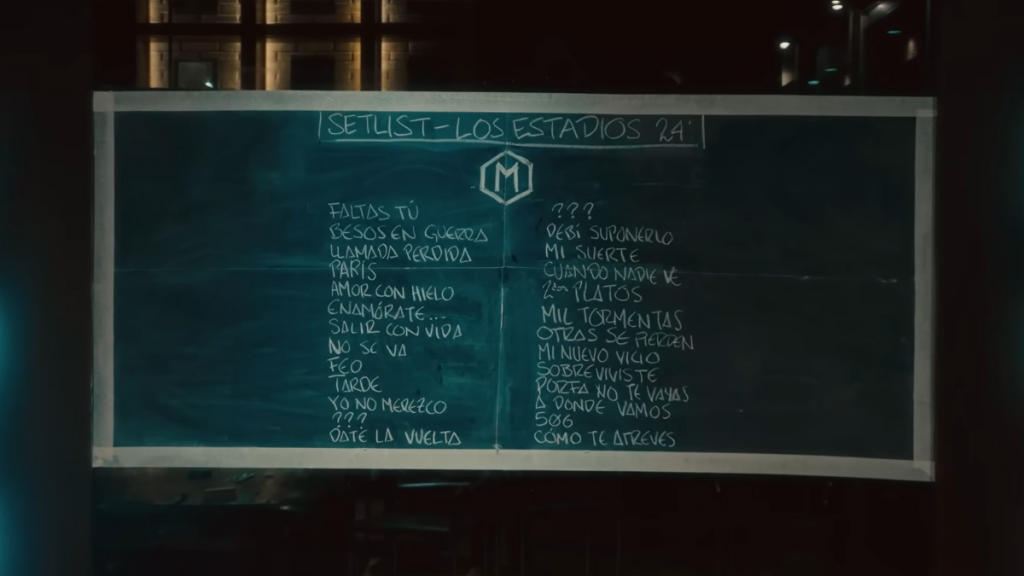 SETLIST-LOS ESTADIOS 24'
M
FALTAS TÚ
BESOS EN GUERRA
LLAMADA PERDIDA
PARÍS
AMOR CON HIELO
ENAMÓRATE...
SALIR CON VIDA
NO SE VA
FEO
TARDE
YO NO MEREZCO
???
DATE LA VUELTA
???
DEBÍ SUPONERLO
MI SUERTE
CUANDO NADIE VE
2ºs PLATOS
MIL TORMENTAS
OTRAS SE PIERDEN
MI NUEVO VICIO
SOBREVIVISTE
PORFA NO TE VAYAS
A DONDE VAMOS
506
CÓMO TE ATREVES